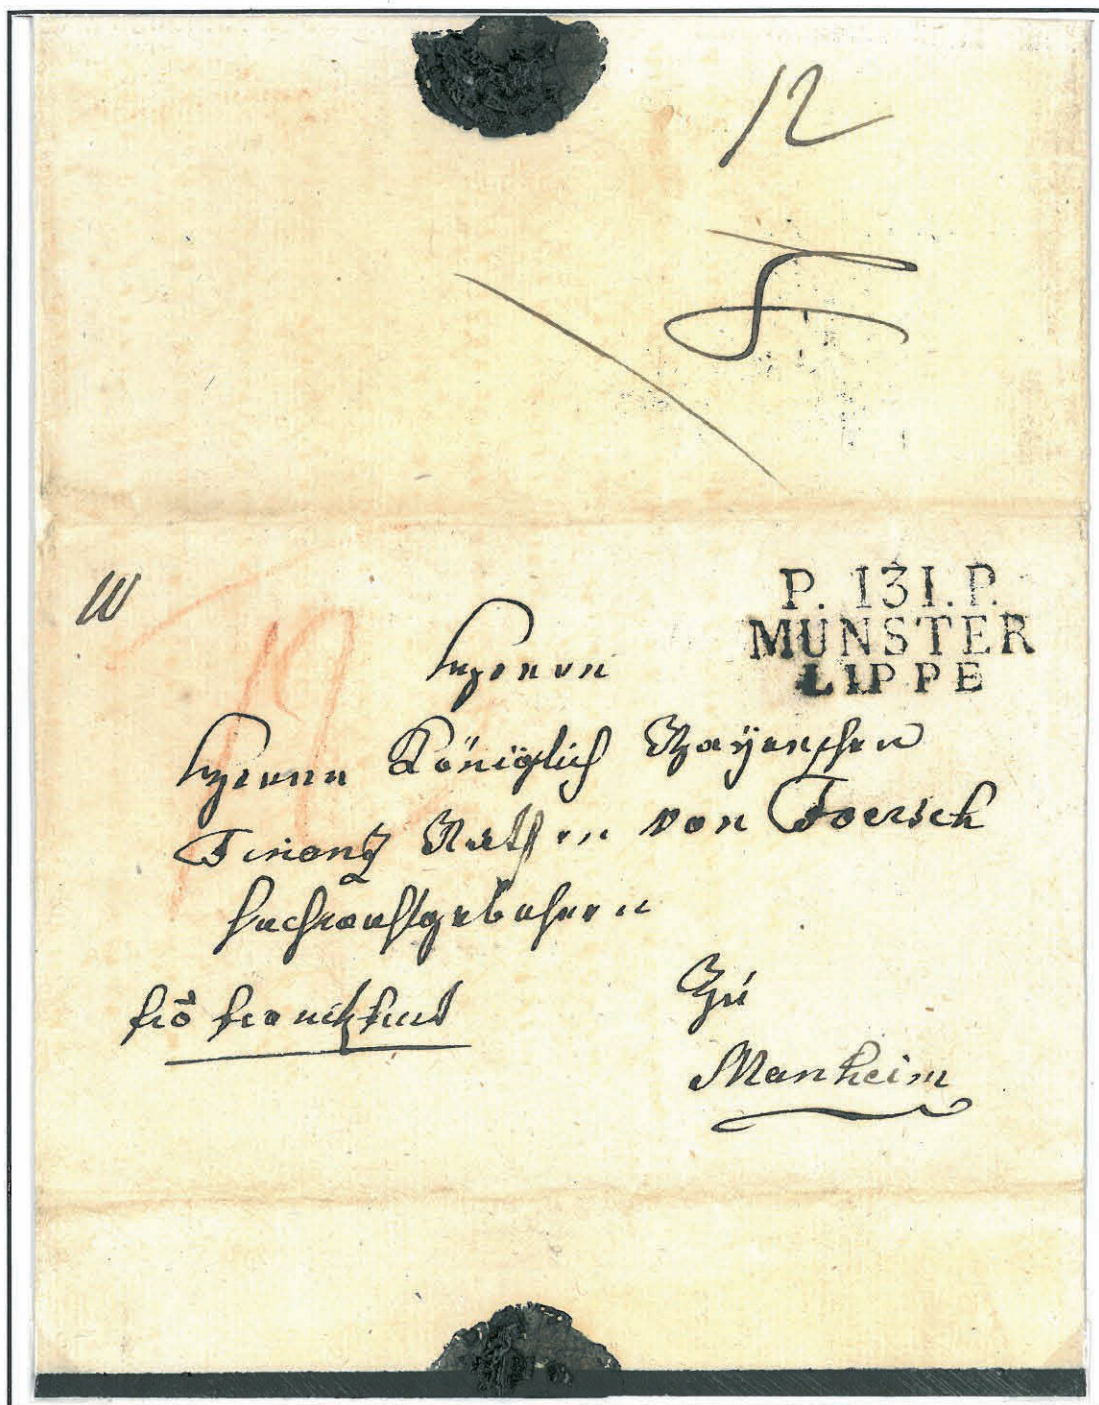 12
P. 131. P.
MUNSTER
LIPPE
Herrn
Herrn Königlich Bayerschen
Finanz Rathen von Foersch
Hochwohlgebohren
frõ franckfurt
Zu
Manheim